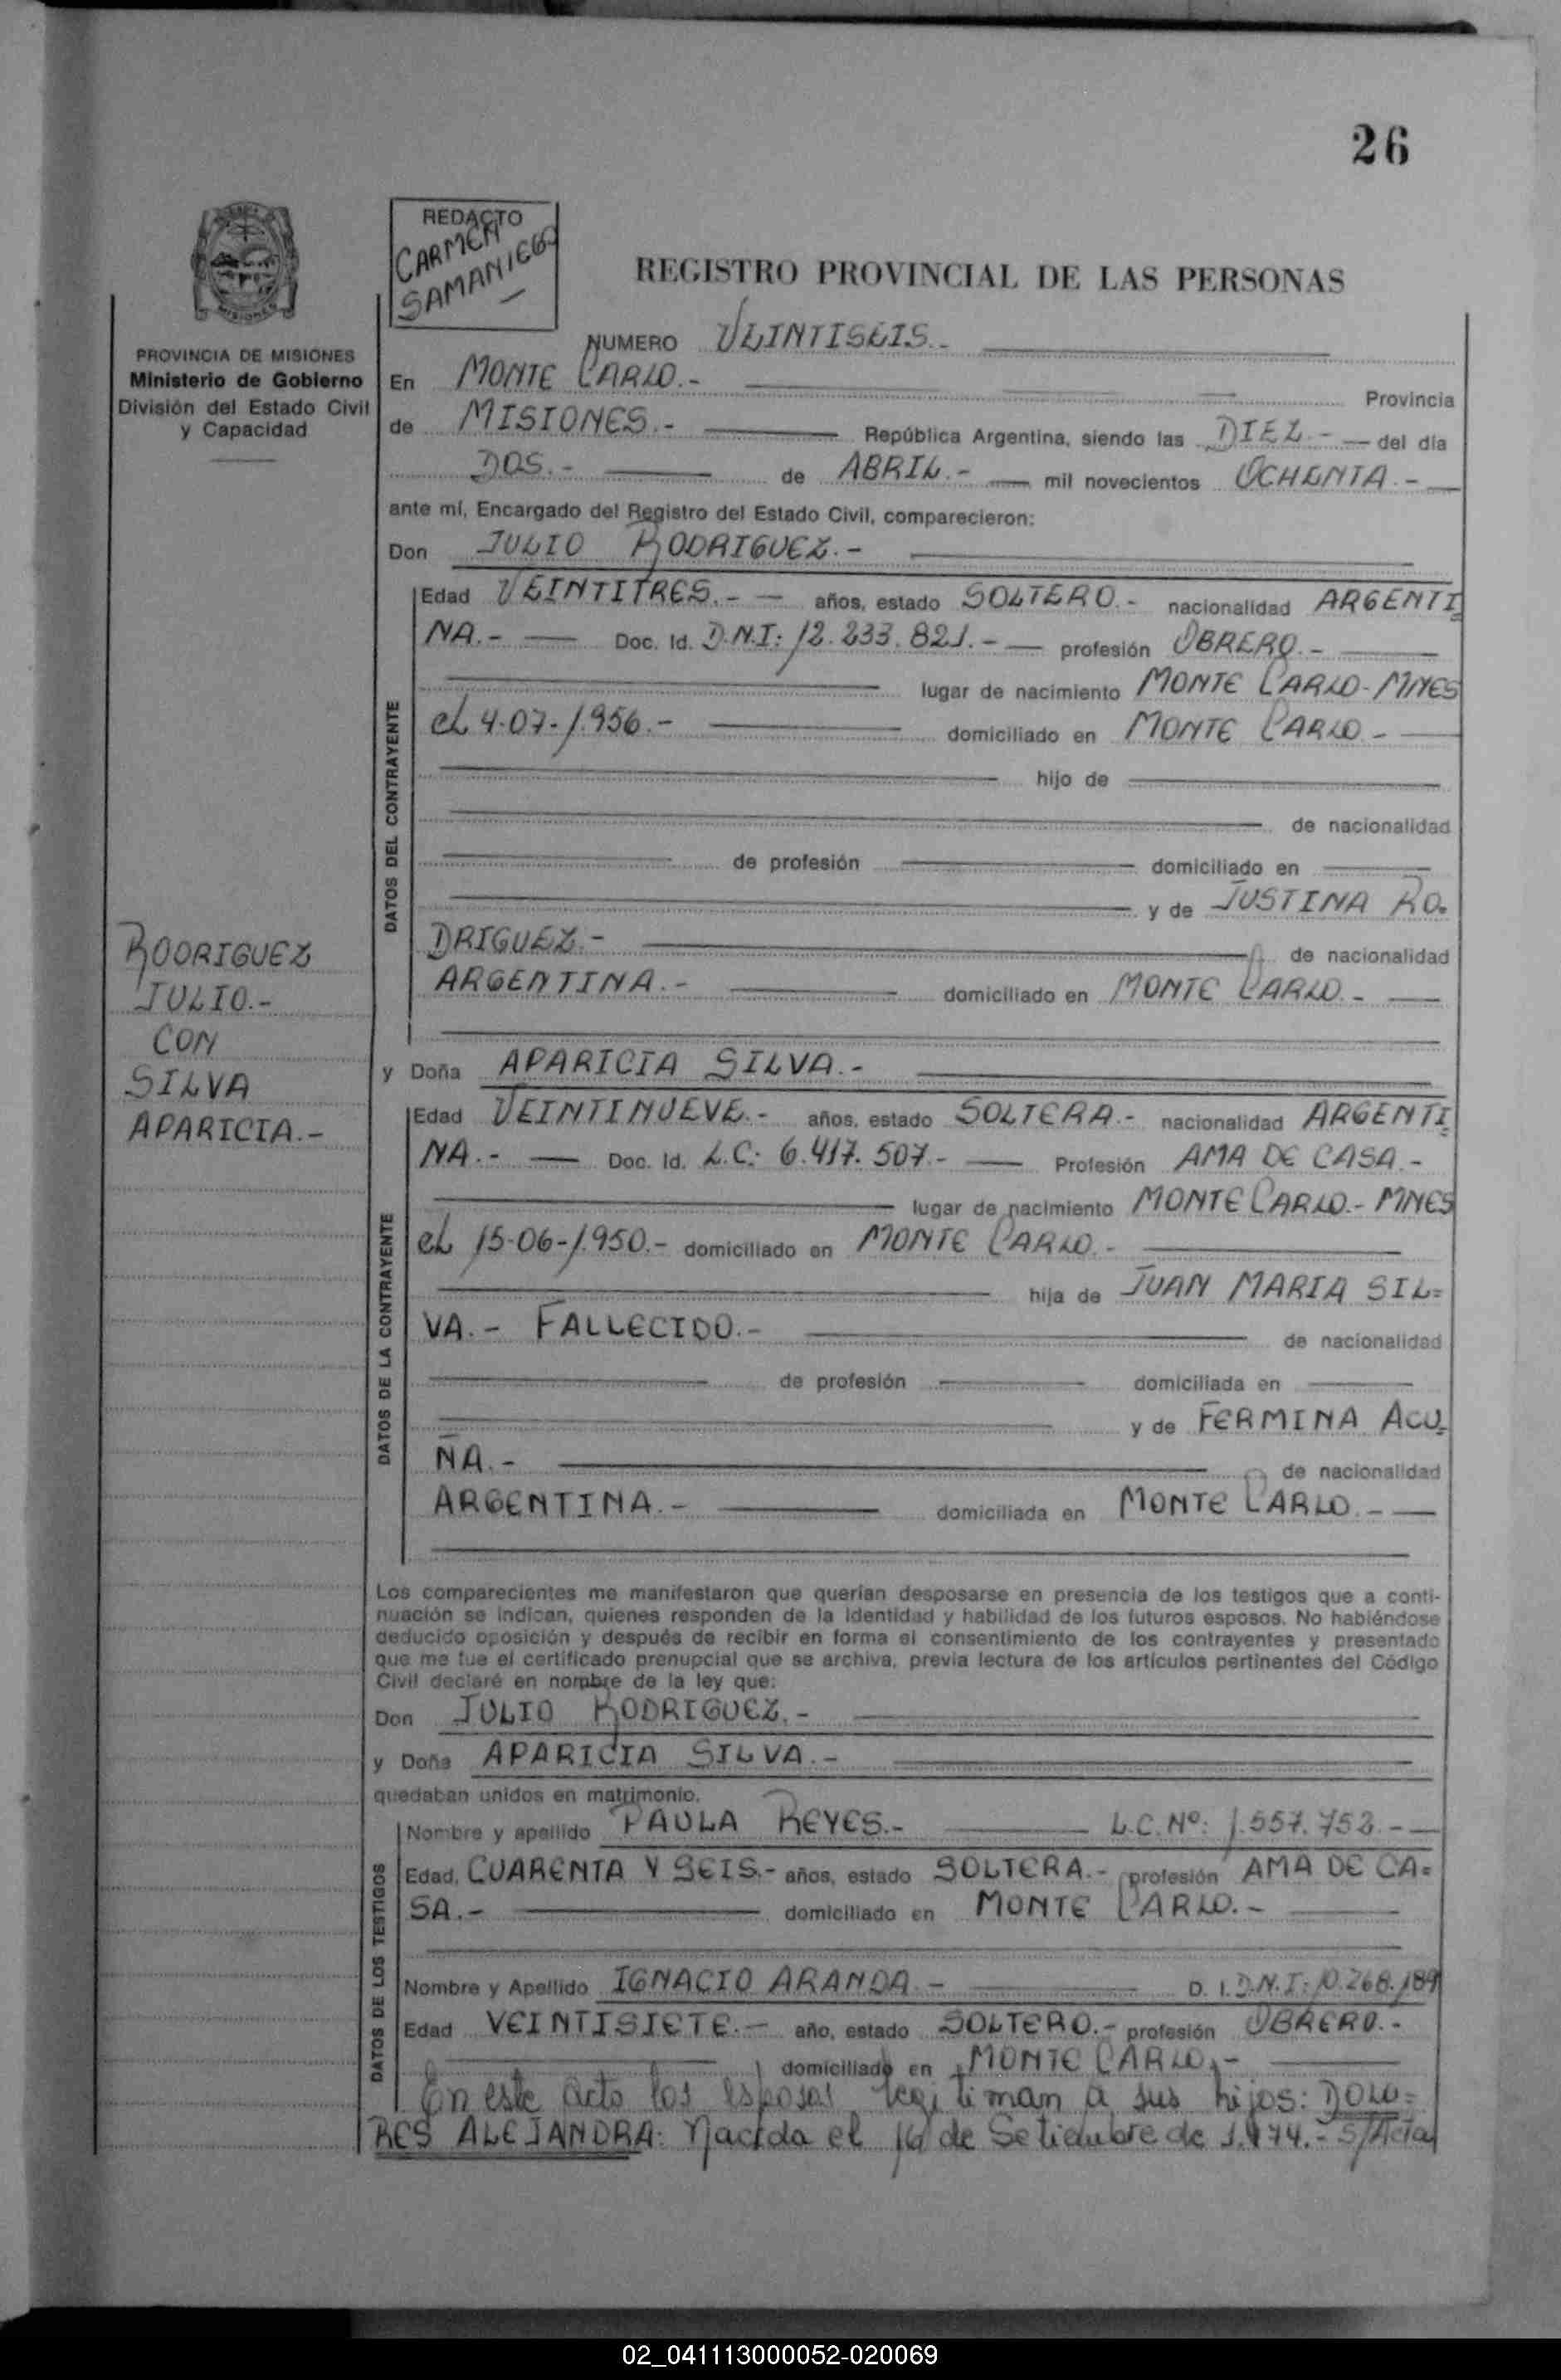 26
REDACTO
CARMEN
SAMANIEGO
REGISTRO PROVINCIAL DE LAS PERSONAS
PROVINCIA DE MISIONES
Ministerio de Gobierno
División del Estado Civil
y Capacidad
NUMERO VEINTISEIS.-
En MONTE CARLO.- Provincia
de MISIONES.- República Argentina, siendo las DIEZ.- del día
DOS.- de ABRIL.- mil novecientos OCHENTA.-
ante mí, Encargado del Registro del Estado Civil, comparecieron:
Don JULIO RODRIGUEZ.-
DATOS DEL CONTRAYENTE
Edad VEINTITRES.- años, estado SOLTERO.- nacionalidad ARGENTI
NA.- Doc. Id. D.N.I: 12.233.821.- profesión OBRERO.-
lugar de nacimiento MONTE CARLO-MNES
el 4-07-1.956.- domiciliado en MONTE CARLO-
hijo de
de nacionalidad
de profesión domiciliado en
y de JUSTINA RO=
DRIGUEZ.- de nacionalidad
ARGENTINA.- domiciliado en MONTE CARLO.-
RODRIGUEZ
JULIO.-
CON
SILVA
APARICIA.-
y Doña APARICIA SILVA.-
DATOS DE LA CONTRAYENTE
Edad VEINTINUEVE.- años, estado SOLTERA.- nacionalidad ARGENTI
NA.- Doc. Id. L.C: 6.417.507.- Profesión AMA DE CASA.-
lugar de nacimiento MONTE CARLO.- MNES
el 15-06-1.950.- domiciliado en MONTE CARLO.-
hija de JUAN MARIA SIL=
VA.- FALLECIDO.- de nacionalidad
de profesión domiciliada en
y de FERMINA ACU=
ÑA.- de nacionalidad
ARGENTINA.- domiciliada en MONTE CARLO.-
Los comparecientes me manifestaron que querían desposarse en presencia de los testigos que a conti-
nuación se indican, quienes responden de la identidad y habilidad de los futuros esposos. No habiéndose
deducido oposición y después de recibir en forma el consentimiento de los contrayentes y presentado
que me fue el certificado prenupcial que se archiva, previa lectura de los artículos pertinentes del Código
Civil declaré en nombre de la ley que:
Don JULIO RODRIGUEZ.-
y Doña APARICIA SILVA.-
quedaban unidos en matrimonio.
DATOS DE LOS TESTIGOS
Nombre y apellido PAULA REYES.- L.C.Nº: 1.557.752.-
Edad, CUARENTA Y SEIS.- años, estado SOLTERA.- profesión AMA DE CA=
SA.- domiciliado en MONTE CARLO.-
Nombre y Apellido IGNACIO ARANDA.- D. I. D.N.I: 10.268.189
Edad VEINTISIETE.- año, estado SOLTERO.- profesión OBRERO.-
domiciliado en MONTE CARLO,-
En este acto los esposos legitiman a sus hijos: DOLO=
RES ALEJANDRA: Nacida el 16 de Setiembre de 1.974.- S/Acta
02_041113000052-020069